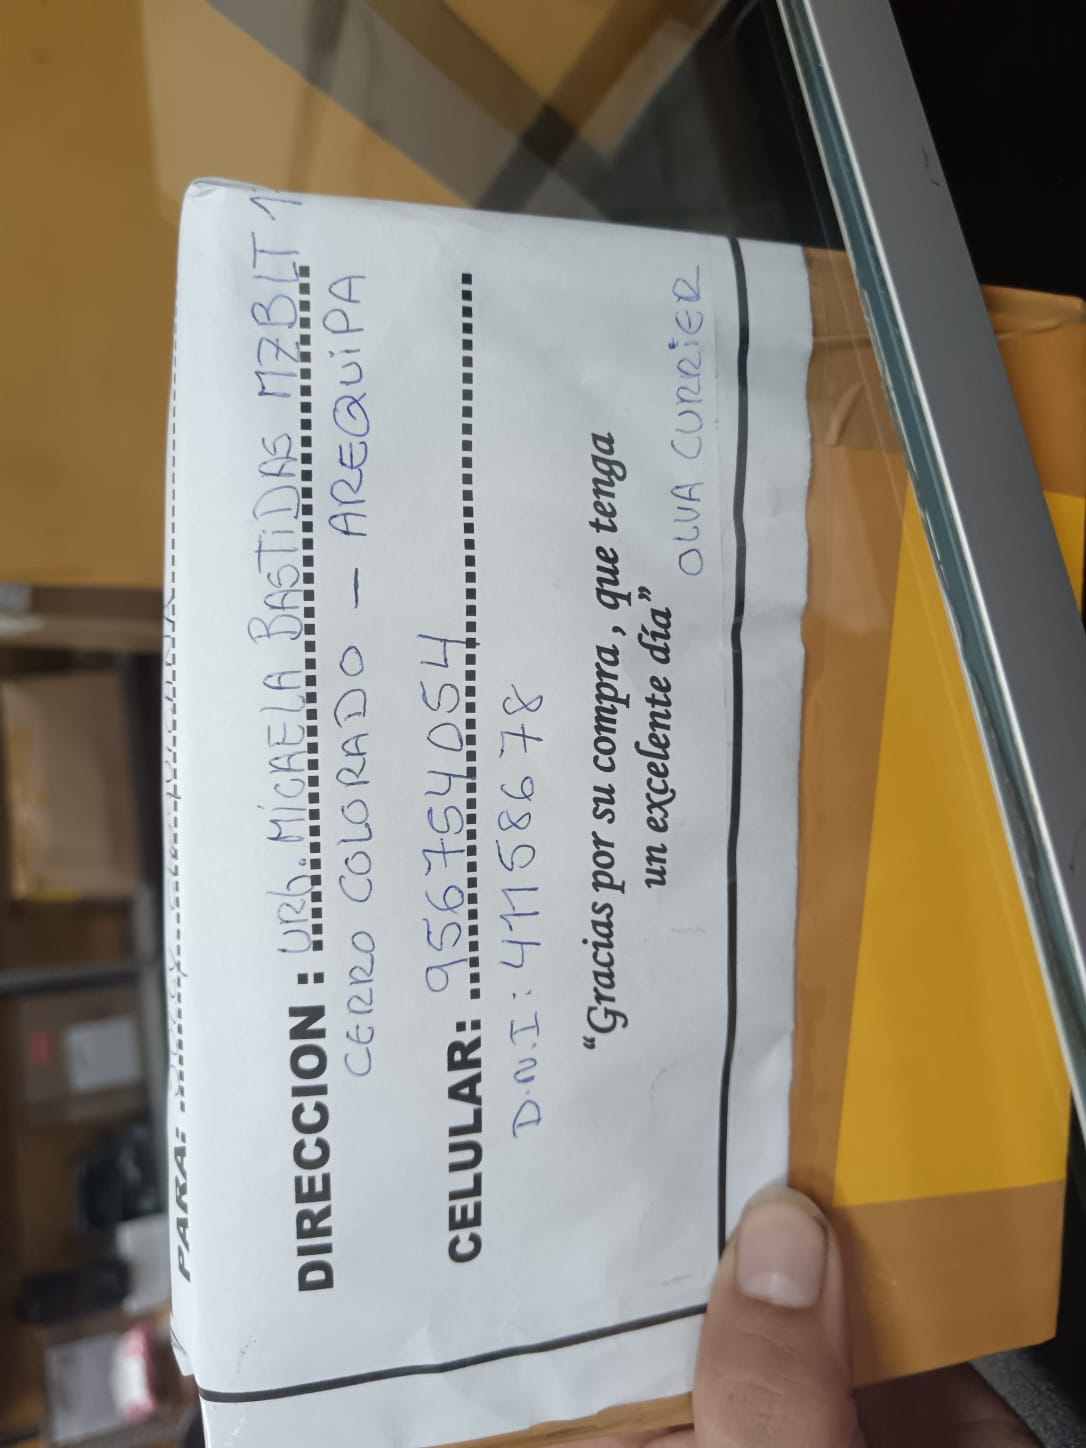 PARA:
DIRECCION : URB. MICAELA BASTIDAS MZBLT 1
CERRO COLORADO - AREQUIPA
CELULAR: 956754054
D.N.I: 41158678
“Gracias por su compra , que tenga
un excelente día”
OLVA CURRIER